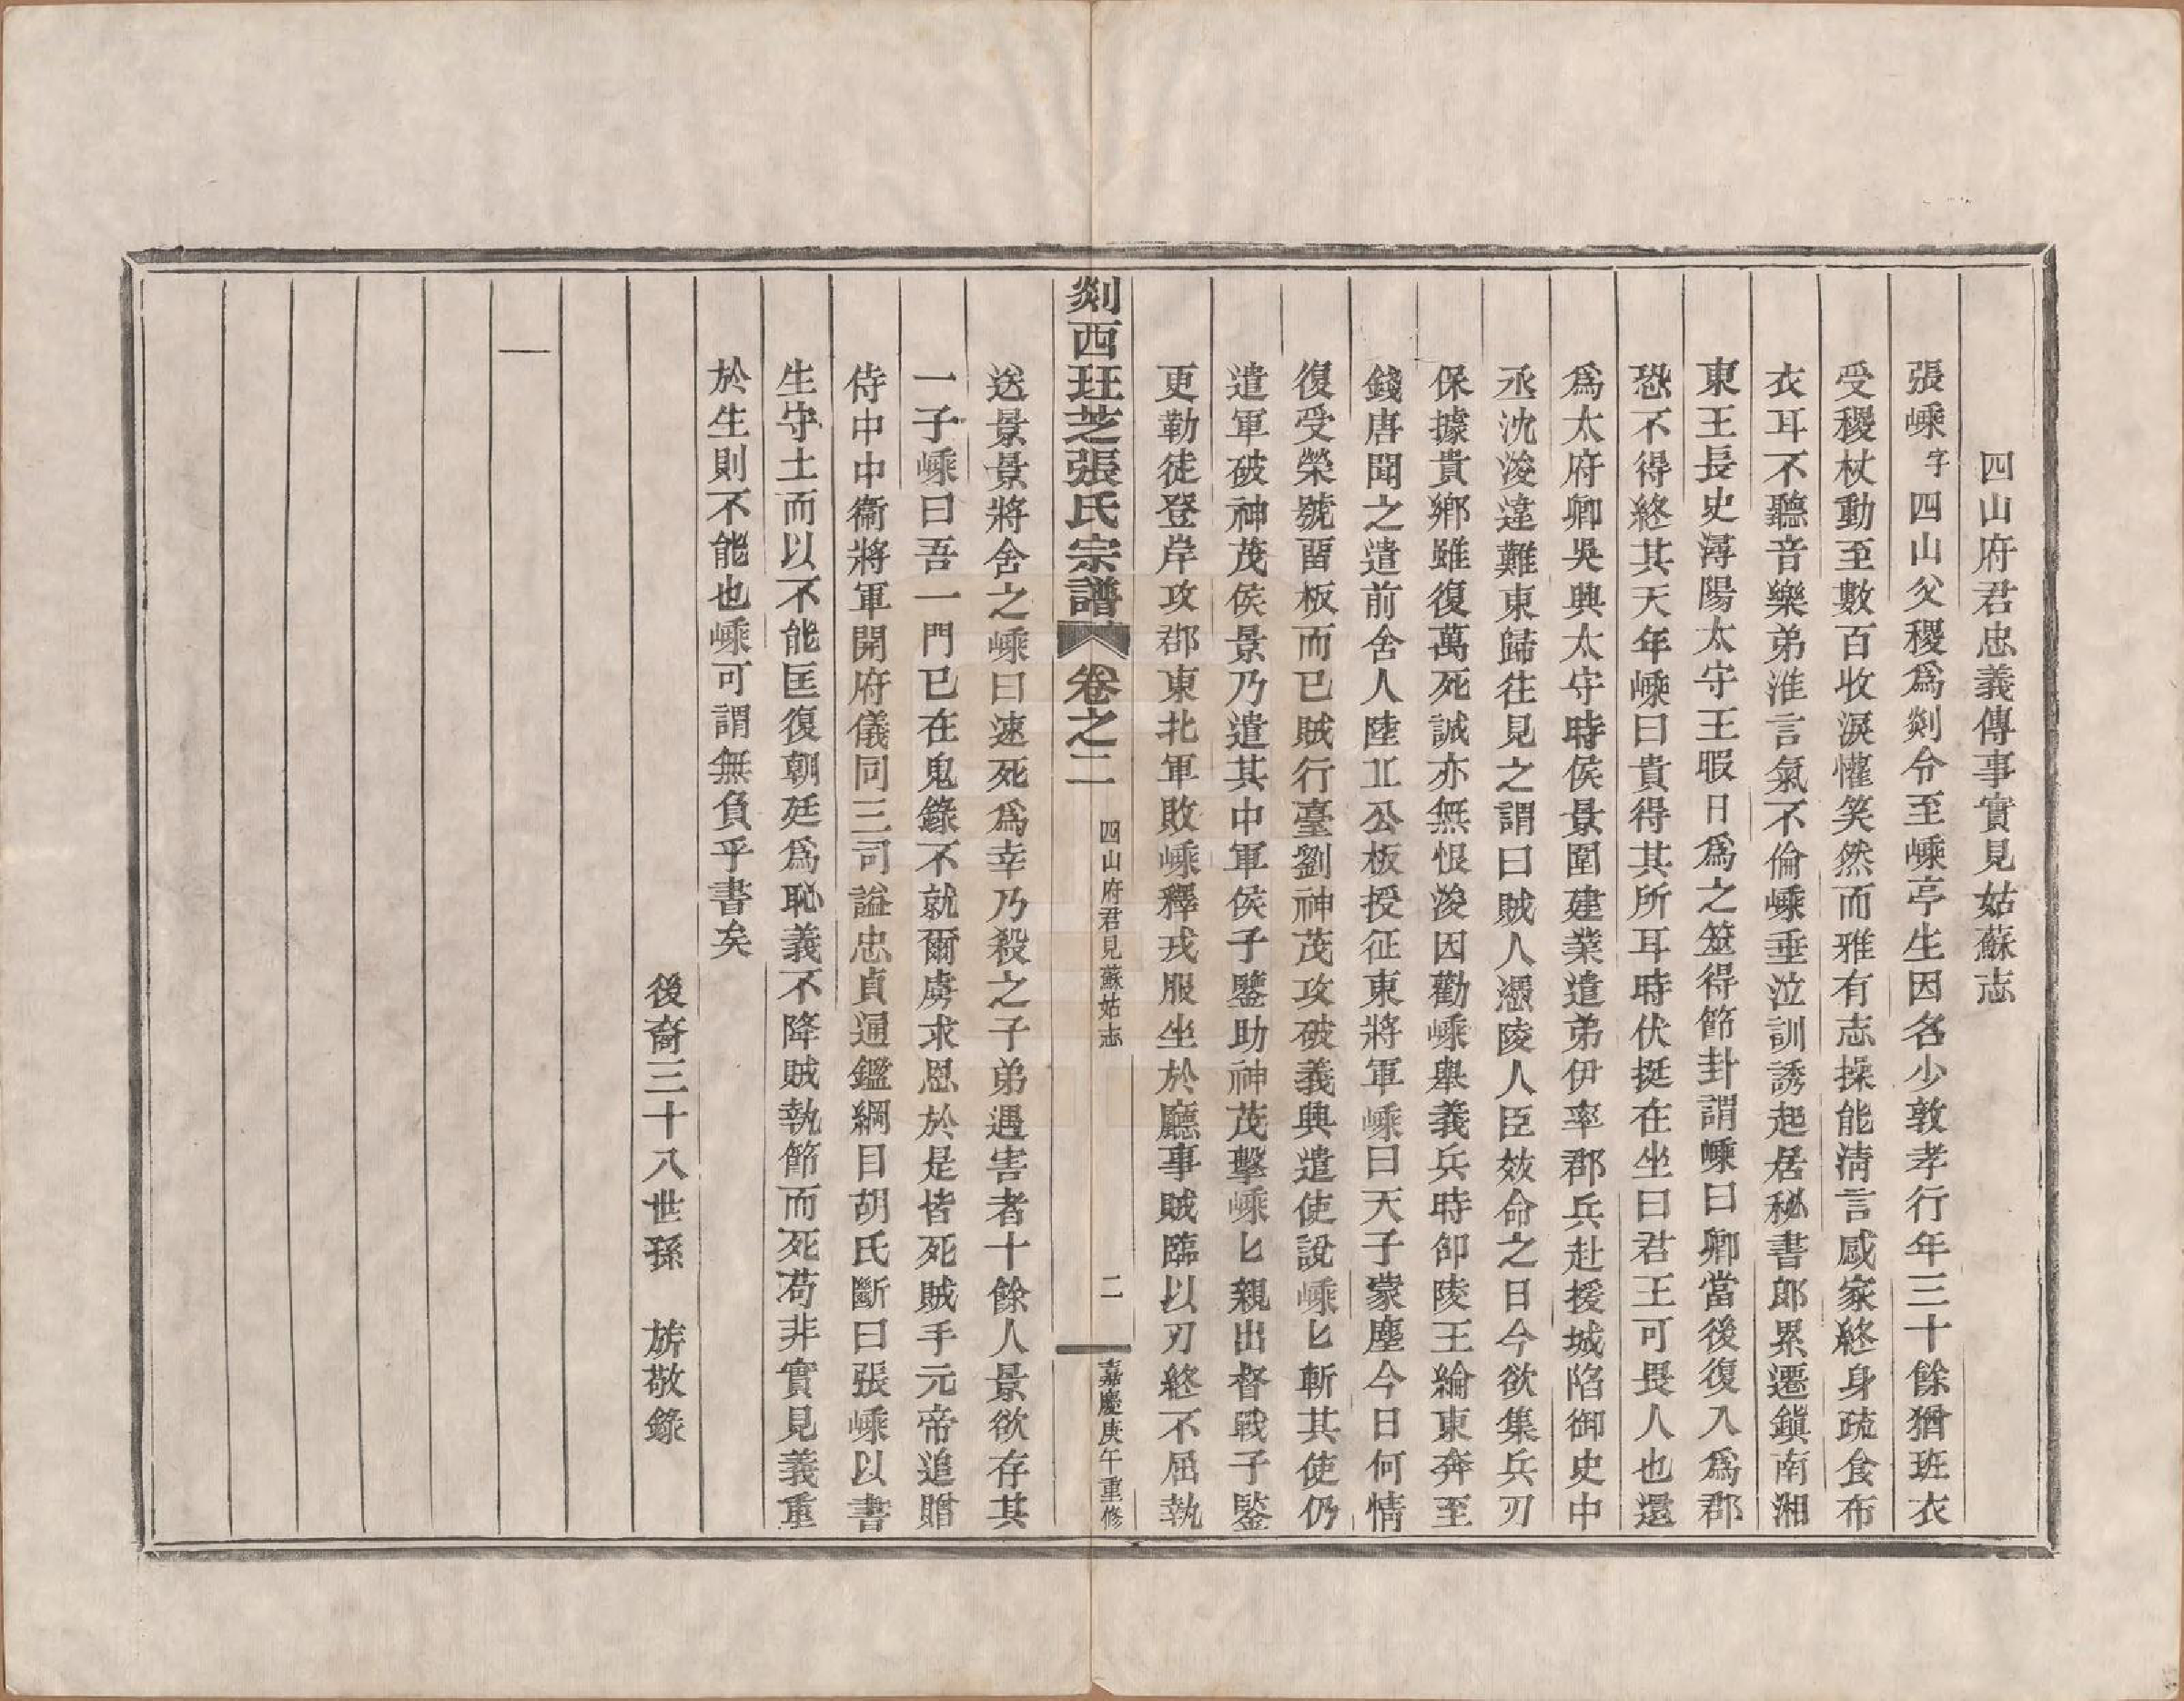 四山府君忠義傳事實見姑蘇志
張嵊字四山父稷爲剡令至嵊亭生因名少敦孝行年三十餘猶班衣
受稷杖動至數百收淚懽笑然而雅有志操能淸言感家終身疏食布
衣耳不聽音樂弟淮言氣不倫嵊垂泣訓誘起居秘書郎累遷鎭南湘
東王長史潯陽太守王暇日爲之筮得節卦謂嵊曰卿當後復入爲郡
恐不得終其天年嵊曰貴得其所耳時伏挺在坐曰君王可畏人也還
爲太府卿吳興太守時侯景圍建業遣弟伊率郡兵赴援城陷御史中
丞沈浚違難東歸往見之謂曰賊人憑陵人臣效命之日今欲集兵刃
保據貴鄉雖復萬死誠亦無恨浚因勸嵊舉義兵時邵陵王綸東奔至
錢唐聞之遣前舍人陸丘公板授征東將軍嵊曰天子蒙塵今日何情
復受榮號畱板而已賊行臺劉神茂攻破義興遣使說嵊匕斬其使仍
遣軍破神茂侯景乃遣其中軍侯子鑒助神茂擊嵊匕親出督戰子鑒
更勒徒登岸攻郡東北軍敗嵊釋戎服坐於廳事賊臨以刃終不屈執
剡西珏芝張氏宗譜 卷之二 四山府君見蘇姑志 二 嘉慶庚午重修
送景景將舍之嵊曰速死爲幸乃殺之子弟遇害者十餘人景欲存其
一子嵊曰吾一門已在鬼錄不就爾虜求恩於是皆死賊手元帝追贈
侍中中衞將軍開府儀同三司謚忠貞通鑑綱目胡氏斷曰張嵊以書
生守土而以不能匡復朝廷爲恥義不降賊執節而死苟非實見義重
於生則不能也嵊可謂無負乎書矣
後裔三十八世孫 旂敬錄